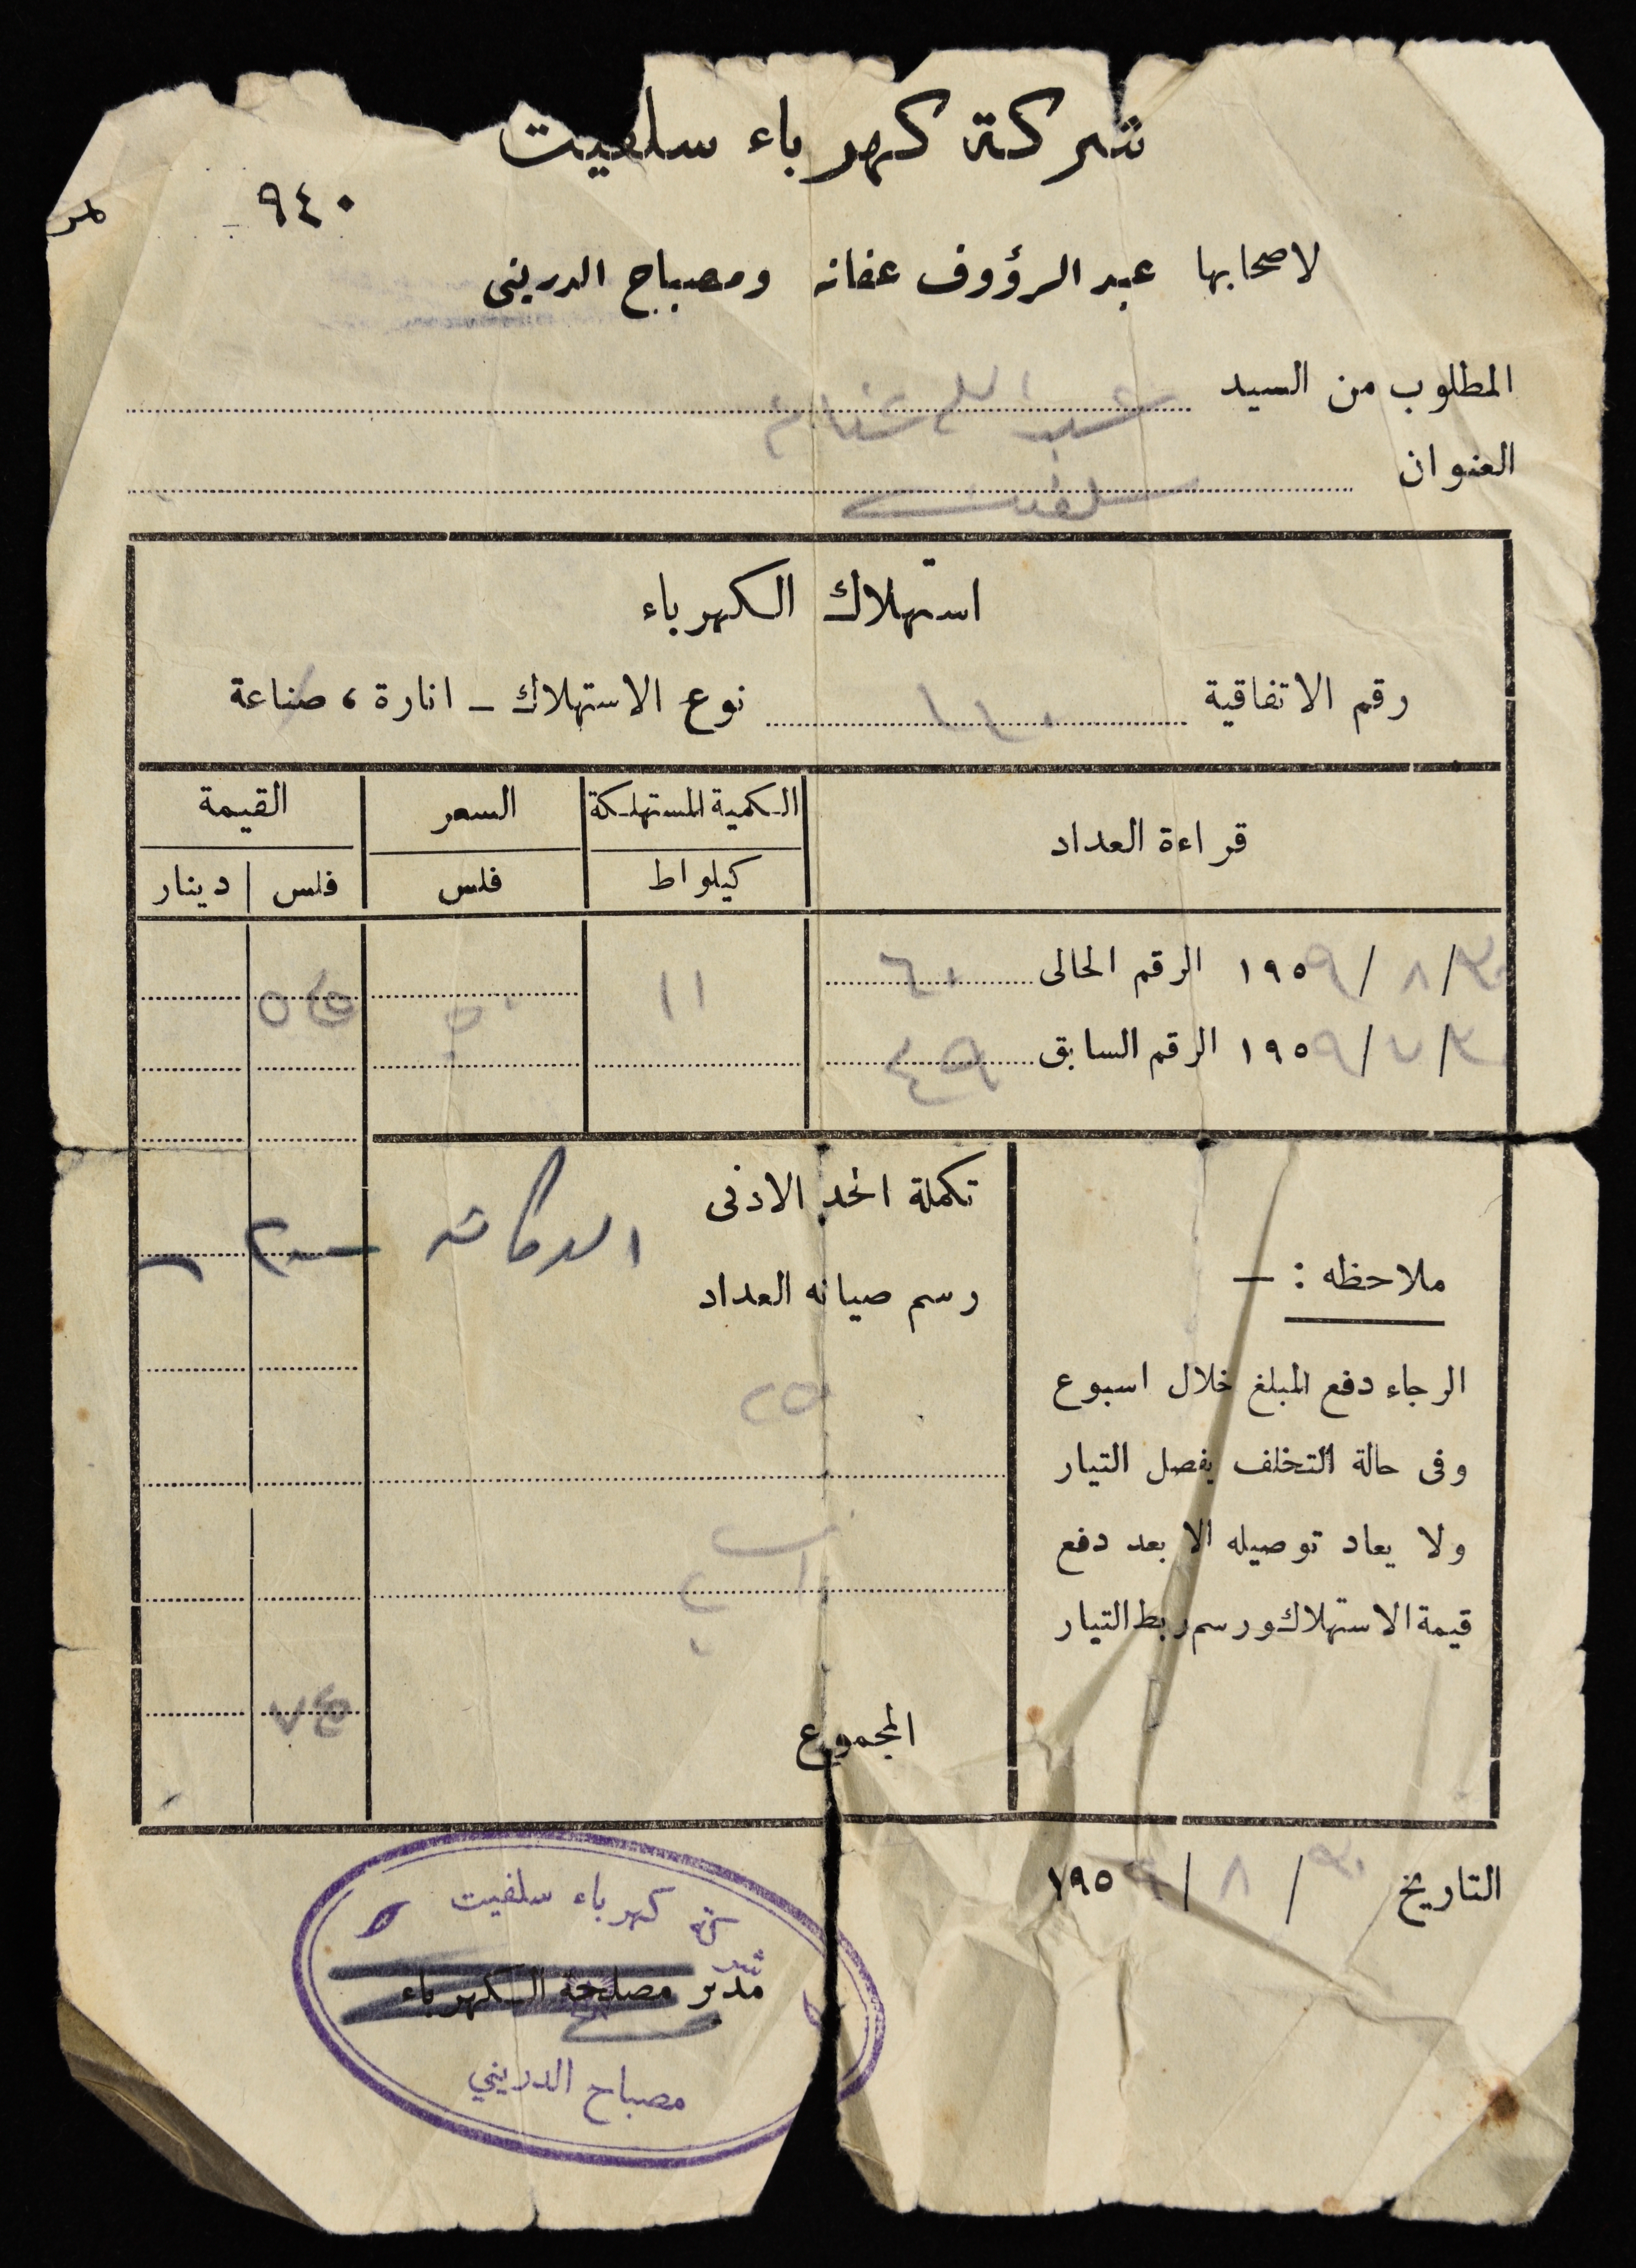 شركة كهرباء سلفيت
نمر ٩٤٠
لاصحابها عبد الرؤوف عفانه ومصباح الدرينى
المطلوب من السيد عبد الله
العنوان سلفيت
استهلاك الكهرباء
رقم الاتفاقية نوع الاستهلاك – انارة ، صناعة
قراءة العداد الكمية المستهلكة السعر القيمة
كيلواط فلس فلس دينار
/ ٨ / ١٩٥٩ الرقم الحالى ٦٠ ١١ ٥٠ ٥٥٠
/ ٧ / ١٩٥٩ الرقم السابق ٤٩
تكملة الحد الادنى
رسم صيانه العداد
ملاحظه : –
الرجاء دفع المبلغ خلال اسبوع
وفى حالة التخلف يفصل التيار
ولا يعاد توصيله الا بعد دفع
قيمة الاستهلاك ورسم ربط التيار
المجموع
التاريخ / ٨ / ١٩٥٩
شركة كهرباء سلفيت
مدير مصلحة الكهرباء
مصباح الدريني